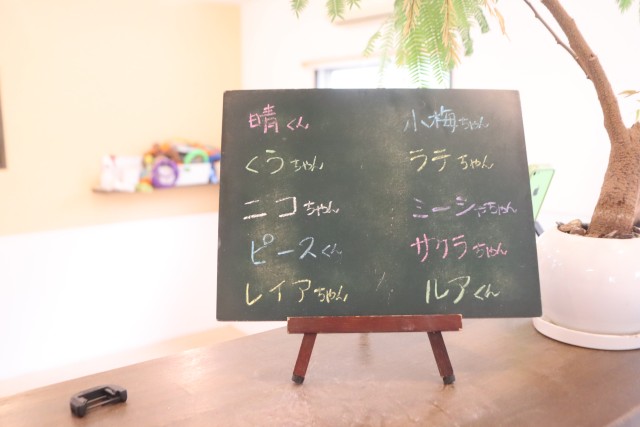 晴くん
くうちゃん
ニコちゃん
ピースくん
レイアちゃん
小梅ちゃん
ラテちゃん
ミーシャちゃん
サクラちゃん
ルアくん